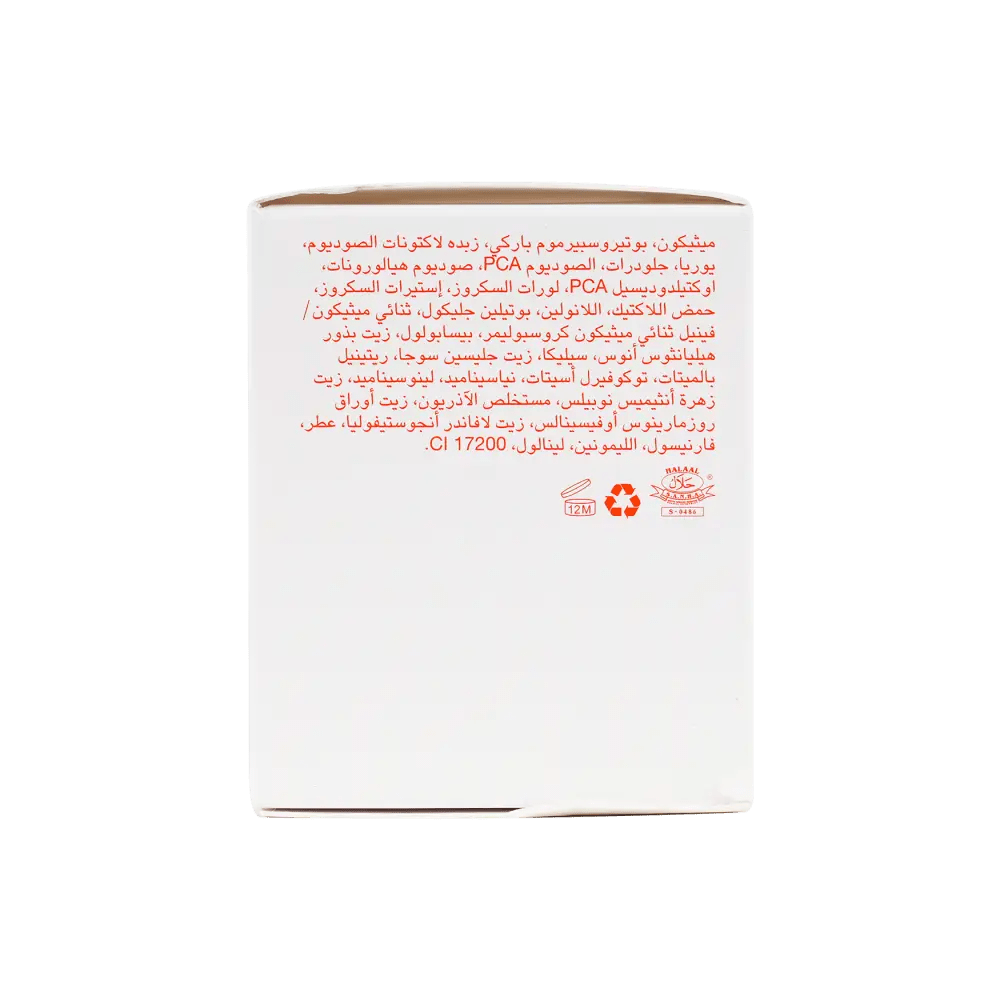 ميثيكون، بوتيروسبيرموم باركي، زبده لاكتونات الصوديوم،
يوريا، جلودرات، الصوديوم PCA، صوديوم هيالورونات،
اوكتيلدوديسيل PCA، لورات السكروز، إستيرات السكروز،
حمض اللاكتيك، اللانولين، بوتيلين جليكول، ثنائي ميثيكون/
فينيل ثنائي ميثيكون كروسبوليمر، بيسابولول، زيت بذور
هيليانثوس أنوس، سيليكا، زيت جليسين سوجا، ريتينيل
بالميتات، توكوفيرل أسيتات، نياسيناميد، لينوسيناميد، زيت
زهرة أنثيميس نوبيلس، مستخلص الآذريون، زيت أوراق
روزمارينوس أوفيسينالس، زيت لافاندر أنجوستيفوليا، عطر،
فارنيسول، الليمونين، لينالول، CI 17200.
HALAAL
حلال ®
S.A.N.H.A.
S-0486
12M